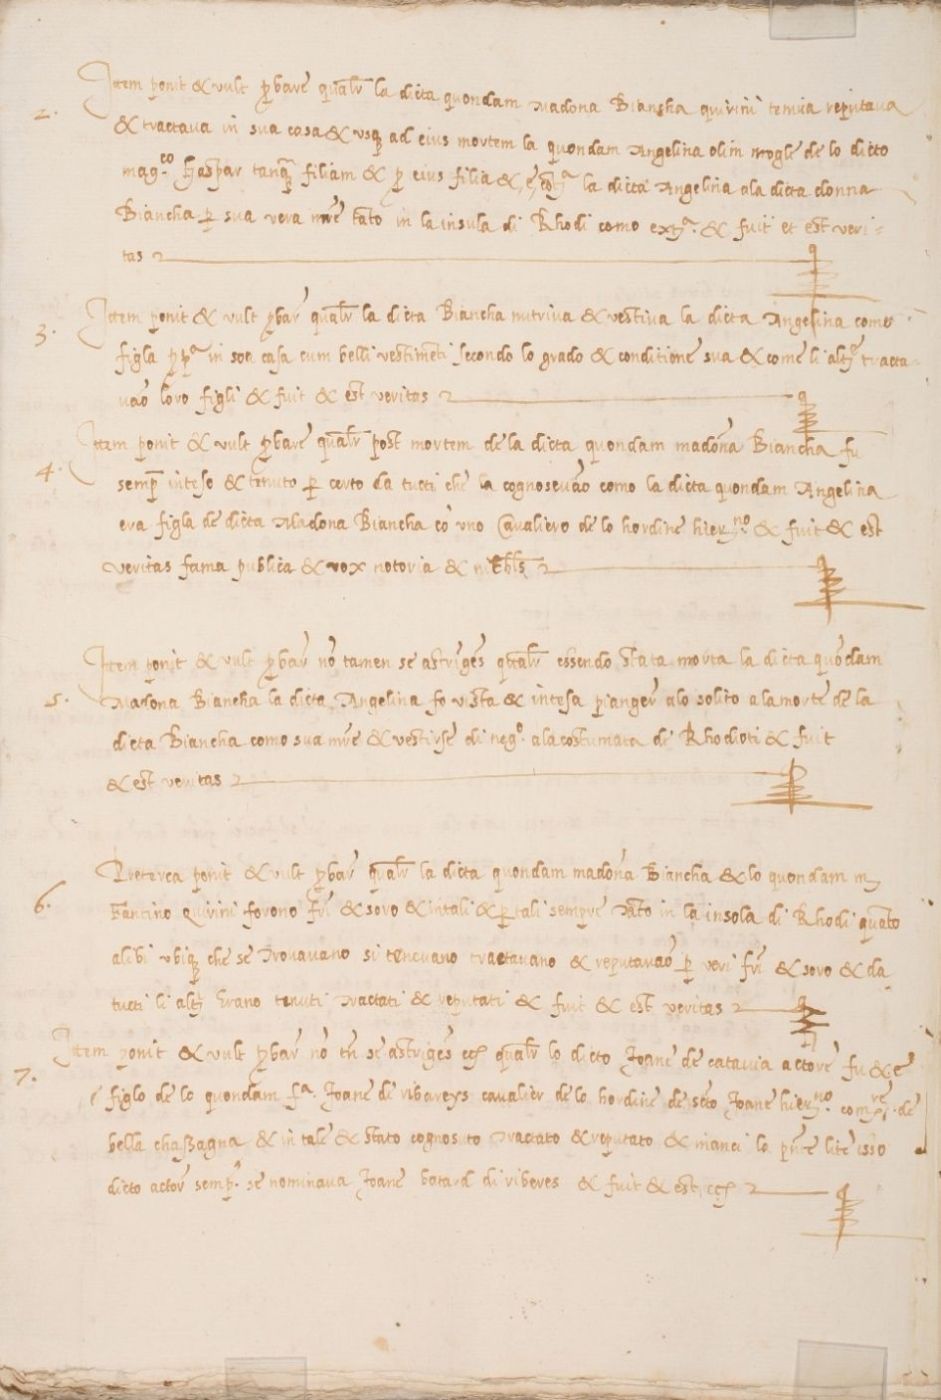 2. Item ponit & vult ꝓbare qualr̃ la dicta quondam Madona Biancha quirini teniua reputaua
& tractaua in sua casa & vsq₃ ad eius mortem la quondam Angelina olim mogle de lo dicto
mag.co Gaspar tanq̃ filiam & ꝑ eius filia & la dicta Angelina ala dicta donna
Biancha ꝑ sua vera mr̃e tãto in la insula di Rhodi como extra & fuit et est veri=
tas
3. Item ponit & vult ꝓbar̃ qualr̃ la dicta Biancha nutriua & vestiua la dicta Angelina como
figla in soa casa cum belli vestimẽti secondo lo grado & conditione sua & come li altri tracta
uaõ loro figli & fuit & est veritas
4. Item ponit & vult ꝓbare qualr̃ post mortem de la dicta quondam madõna Biancha fu
semp̃ inteso & tenuto ꝑ certo da tucti che la cognosceuão como la dicta quondam Angelina
era figla de dicta Madona Biancha cõ vno Caualiero de lo hordine hier.no & fuit & est
veritas fama publica & vox notoria &
5. Item ponit & vult ꝓbar̃ nõ tamen se astrigẽs qualr̃ essendo stata morta la dicta quõdam
Madona Biancha la dicta Angelina fo vista & intesa pianger̃ alo solito a la morte de la
dicta Biancha como sua mr̃e & vestirse di neg.o ala costumata de Rhodioti & fuit
& est veritas
6. Preterea ponit & vult ꝓbar̃ qualr̃ la dicta quondam madõna Biancha & lo quondam m
Fantino Quirini forono fr̃i & soro & in tali & ꝑ tali sempre tãto in la insola di Rhodi quãto
alibi vbiq₃ che se trouauano si teneuano tractauano & reputauaõ ꝑ veri fr̃i & soro & da
tucti li altri Erano tenuti tractati & reputati & fuit & est veritas
7. Item ponit & vult ꝓbar̃ nõ tñ se astrigẽs qualr̃ lo dicto Joane de catauia actore fu & e
figlo de lo quondam f.a Joane de ribereys caualier de lo hordine de scto Joane hier.no com.re de
bella chassagna & in tale & stato cognosuto tractato & reputato & inanci la pñte lite isso
dicto actor̃ semp̃ se nominaua Joane batard di riberes & fuit & est